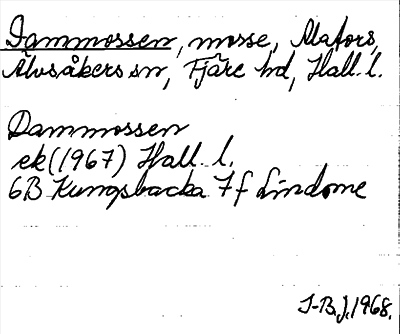 Dammossen, mosse, Alafors,
Älvsåkers sn, Fjäre hd, Hall. l.
Dammossen
ek (1967) Hall. l.
6B Kungsbacka 7f Lindome
J-B.J. 1968.